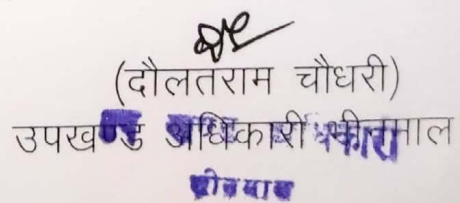 (दौलतराम चौधरी)
उपखण्ड अधिकारी भीनमाल
भीनमाल